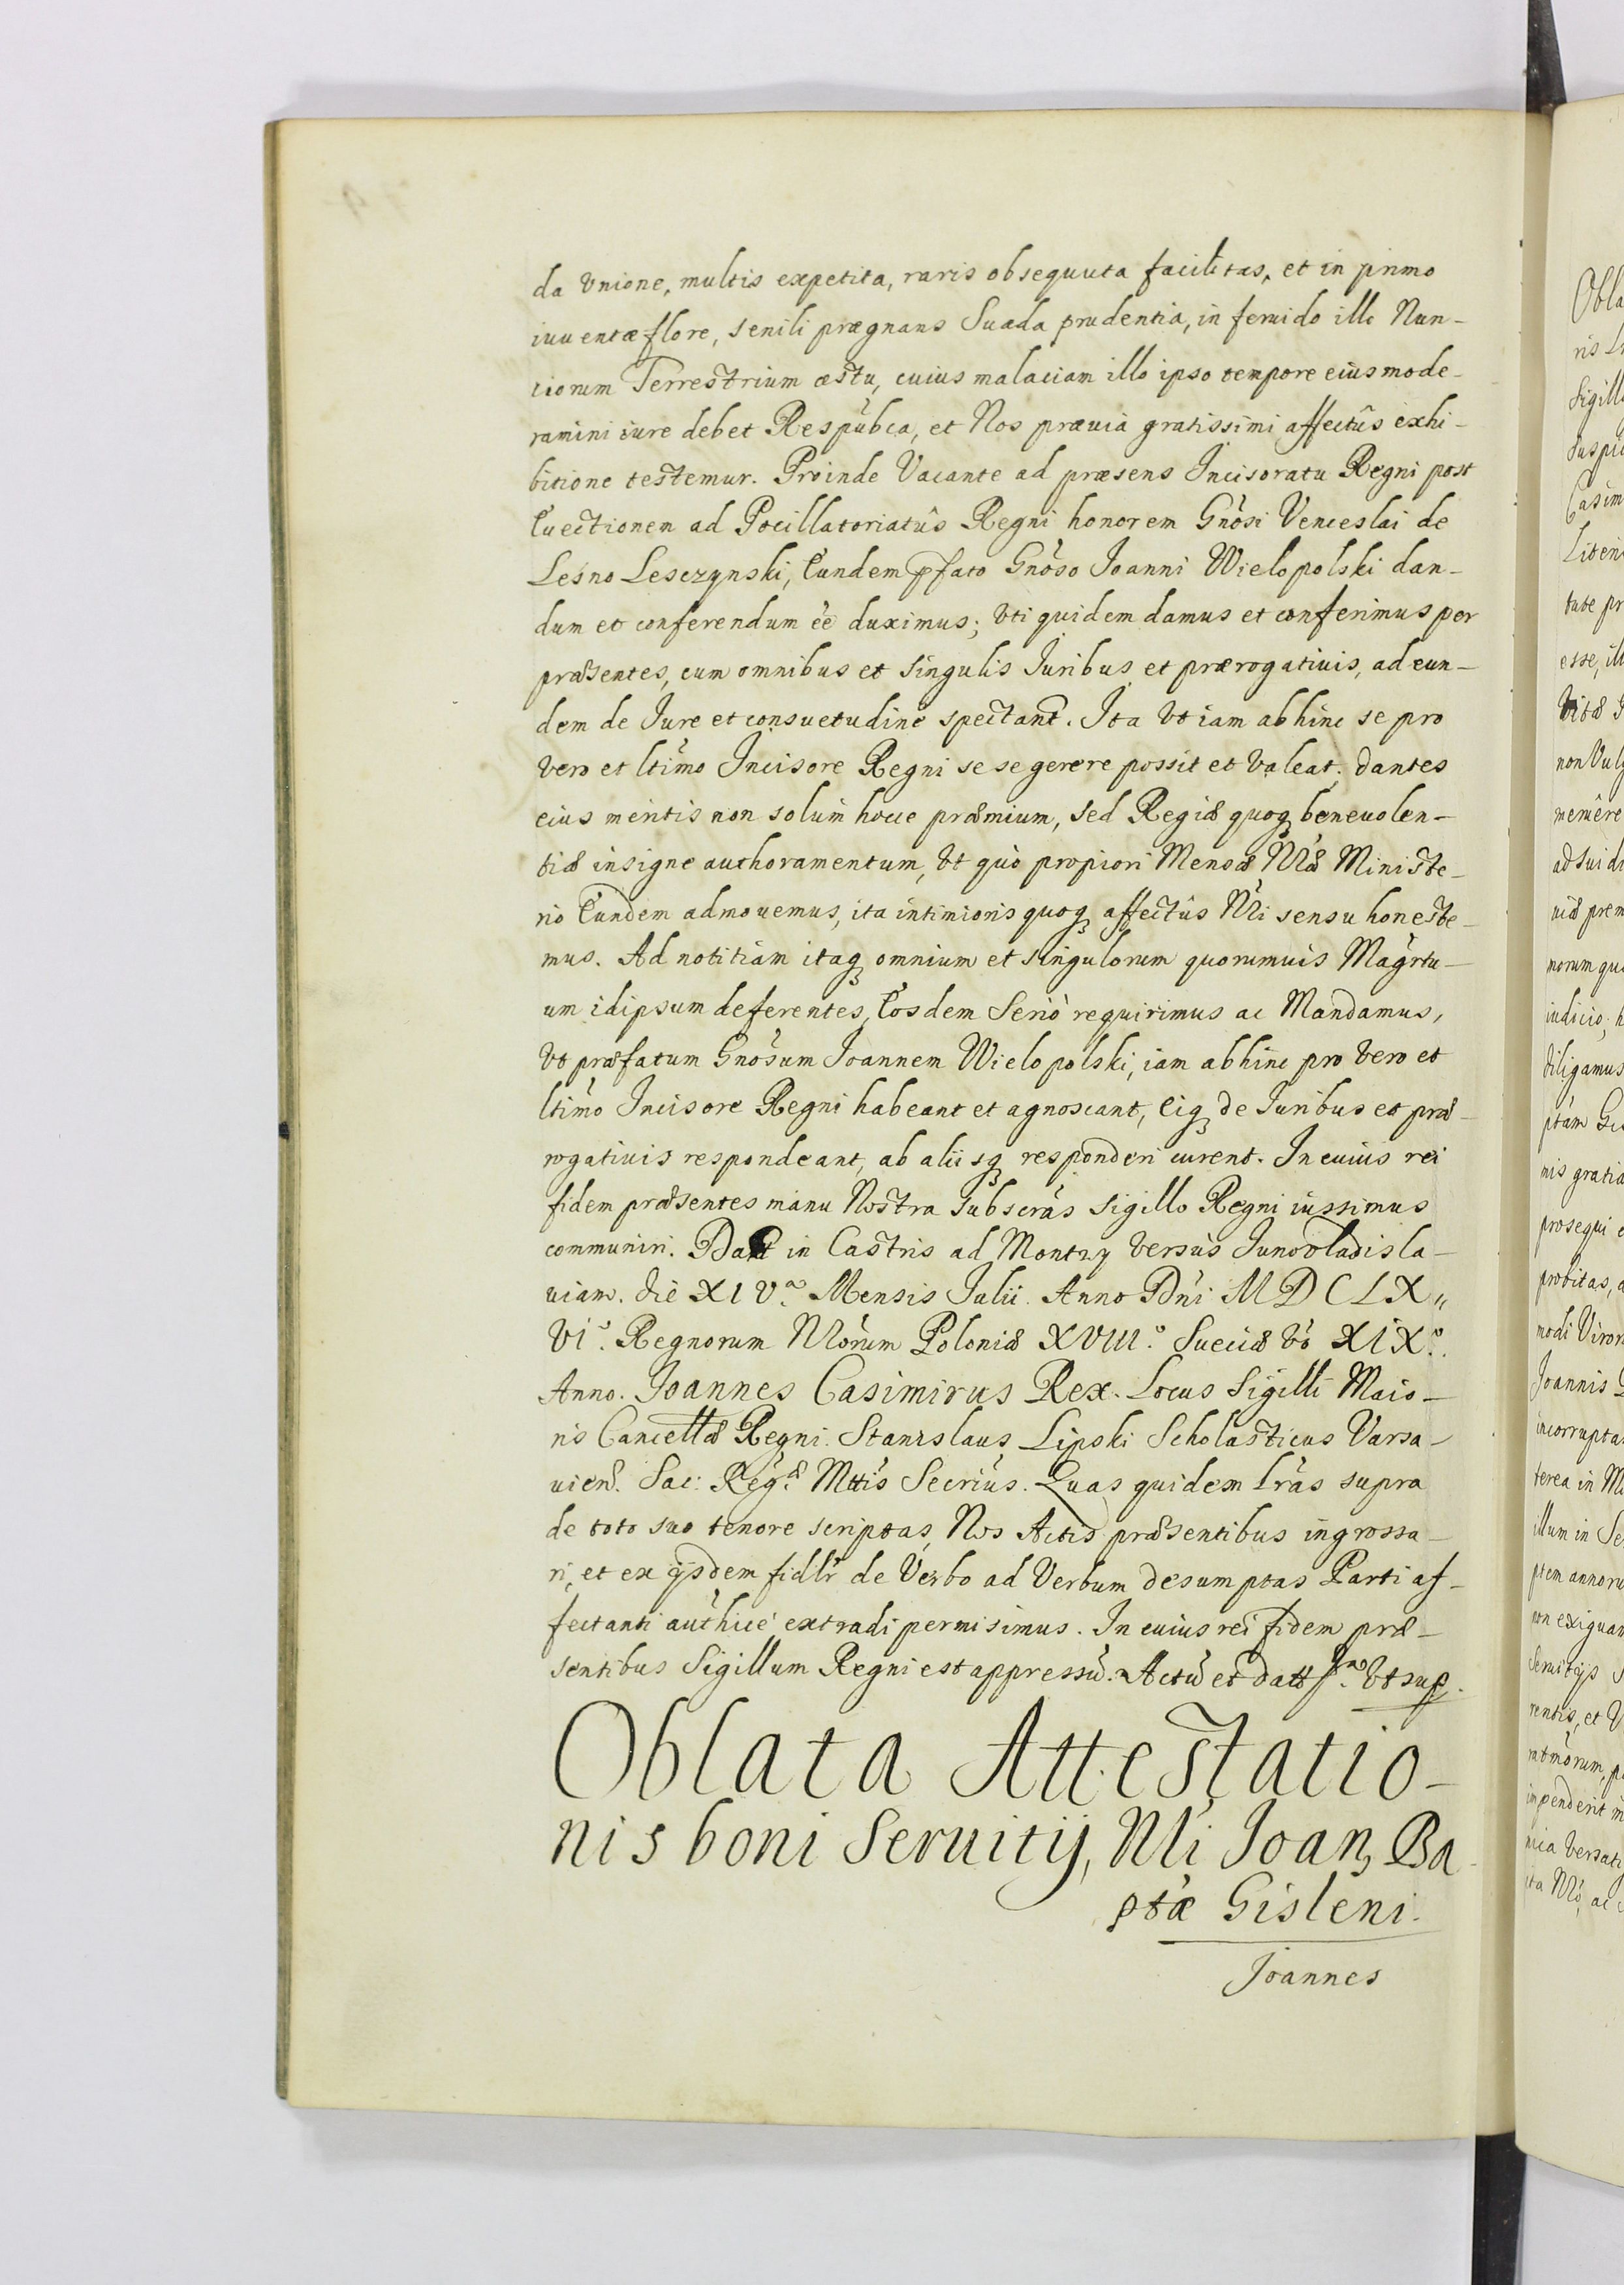 da Vnione, multis expetita, raris obsequuta facilitas, et in primo
iuuentæ flore, senili prægnans Suada prudentia, in feruido illo Nun-
tiorum Terrestrium æstu, cuius malaciam illo ipso tempore eius mode-
ramini iure debet Respubca, et Nos præuia gratissimi affectûs exhi-
bitione testemur. Proinde Vacante ad præsens Incisoratu Regni post
Euectionem ad Pocillatoriatûs Regni honorem Gnosi Venceslai de
Lesno Lesczynski, Eundem pfato Gnoso Joanni Wielopolski dan-
dum et conferendum ee duximus; Vti quidem damus et conferimus per
præsentes, cum omnibus et singulis Juribus et prærogatiuis, ad eun-
dem de Jure et consuetudine spectant. Ita Vt iam abhinc se pro
Vero et ltimo Incisore Regni sese gerere possit et Valeat; dantes
eius meritis non solum hocce præmium, sed Regiæ quoq benevolen-
tiæ insigne authoramentum, Vt quò propiori Mensæ Nræ Ministe-
rio Eundem admouemus, ita intimioris quoq affectûs Nri sensu honeste-
mus. Ad notitiam itaq omnium et singulorum quorumuis Magrtu-
um idipsum deferentes, Eosdem Seriò requirimus ac Mandamus,
Vt præfatum Gnosum Joannem Wielopolski, iam abhinc pro Vero et
ltimo Incisore Regni habeant et agnoscant, Eiq de Juribus et præ-
rogatiuis respondeant, ab aliisq responderi curent. In cuius rei
fidem præsentes manu Nostra subscras Sigillo Regni iussimus
communiri. Datt in Castris ad Montwy Versus Junovladisla-
uiam. die XIVa. Mensis Julii. Anno Dni MDCLX„
VIo. Regnorum Nrorum Poloniæ XVIIIo. Sueciæ Vo XIXo.
Anno. Joannes Casimirus Rex. Locus Sigilli Maio-
ris Cancellæ Regni. Stanislaus Lipski Scholasticus Varsa-
uien. Sac: Regæ. Mttis Secrius. Quas quidem lras supra
de toto suo tenore scriptas, Nos Actis præsentibus ingrossa-
ri, et ex ijsdem fidlr de Verbo ad Verbum desumptas Parti af-
fectanti authice extradi permisimus. In cuius rei fidem præ-
sentibus Sigillum Regni est appressu. Actu et datt Vt sup.
Oblata Attestatio-
nis boni Seruitij, Nri Joan Ba-
ptæ Gisleni.
Joannes